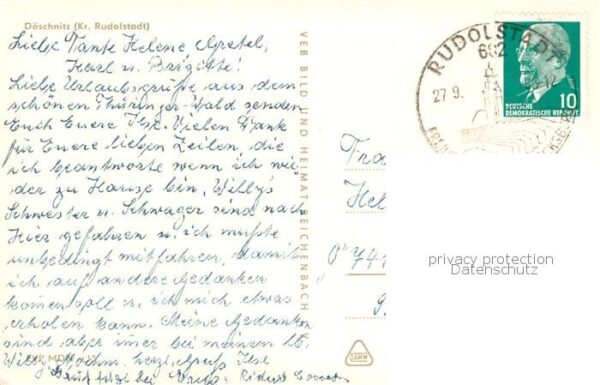 Döschnitz (Kr. Rudolstadt)
Liebe Tante Helene, Gretel,
Karl u. Brigitte!
Liebe Urlaubsgrüße aus dem
schönen Thüringer-Wald senden
Euch Euere Ilse. Vielen Dank
für Euere lieben Zeilen, die
ich beantworte wenn ich wie-
der zu Hause bin. Willy's
Schwester u. Schwager sind nach
hier gefahren u. ich mußte
unbedingt mitfahren, damit
ich auf andere Gedanken
komen soll u. ich mich etwas
erholen kann. Meine Gedanken
sind aber imer bei meinem lb.
Willy. Nochm. herzl. Gruß Ilse
VEB BILD UND HEIMAT REICHENBACH
RUDOLSTADT
682
27.9.
DEUTSCHE
DEMOKRATISCHE REPUBLIK
10
Fra
Hel
privacy protection
Datenschutz